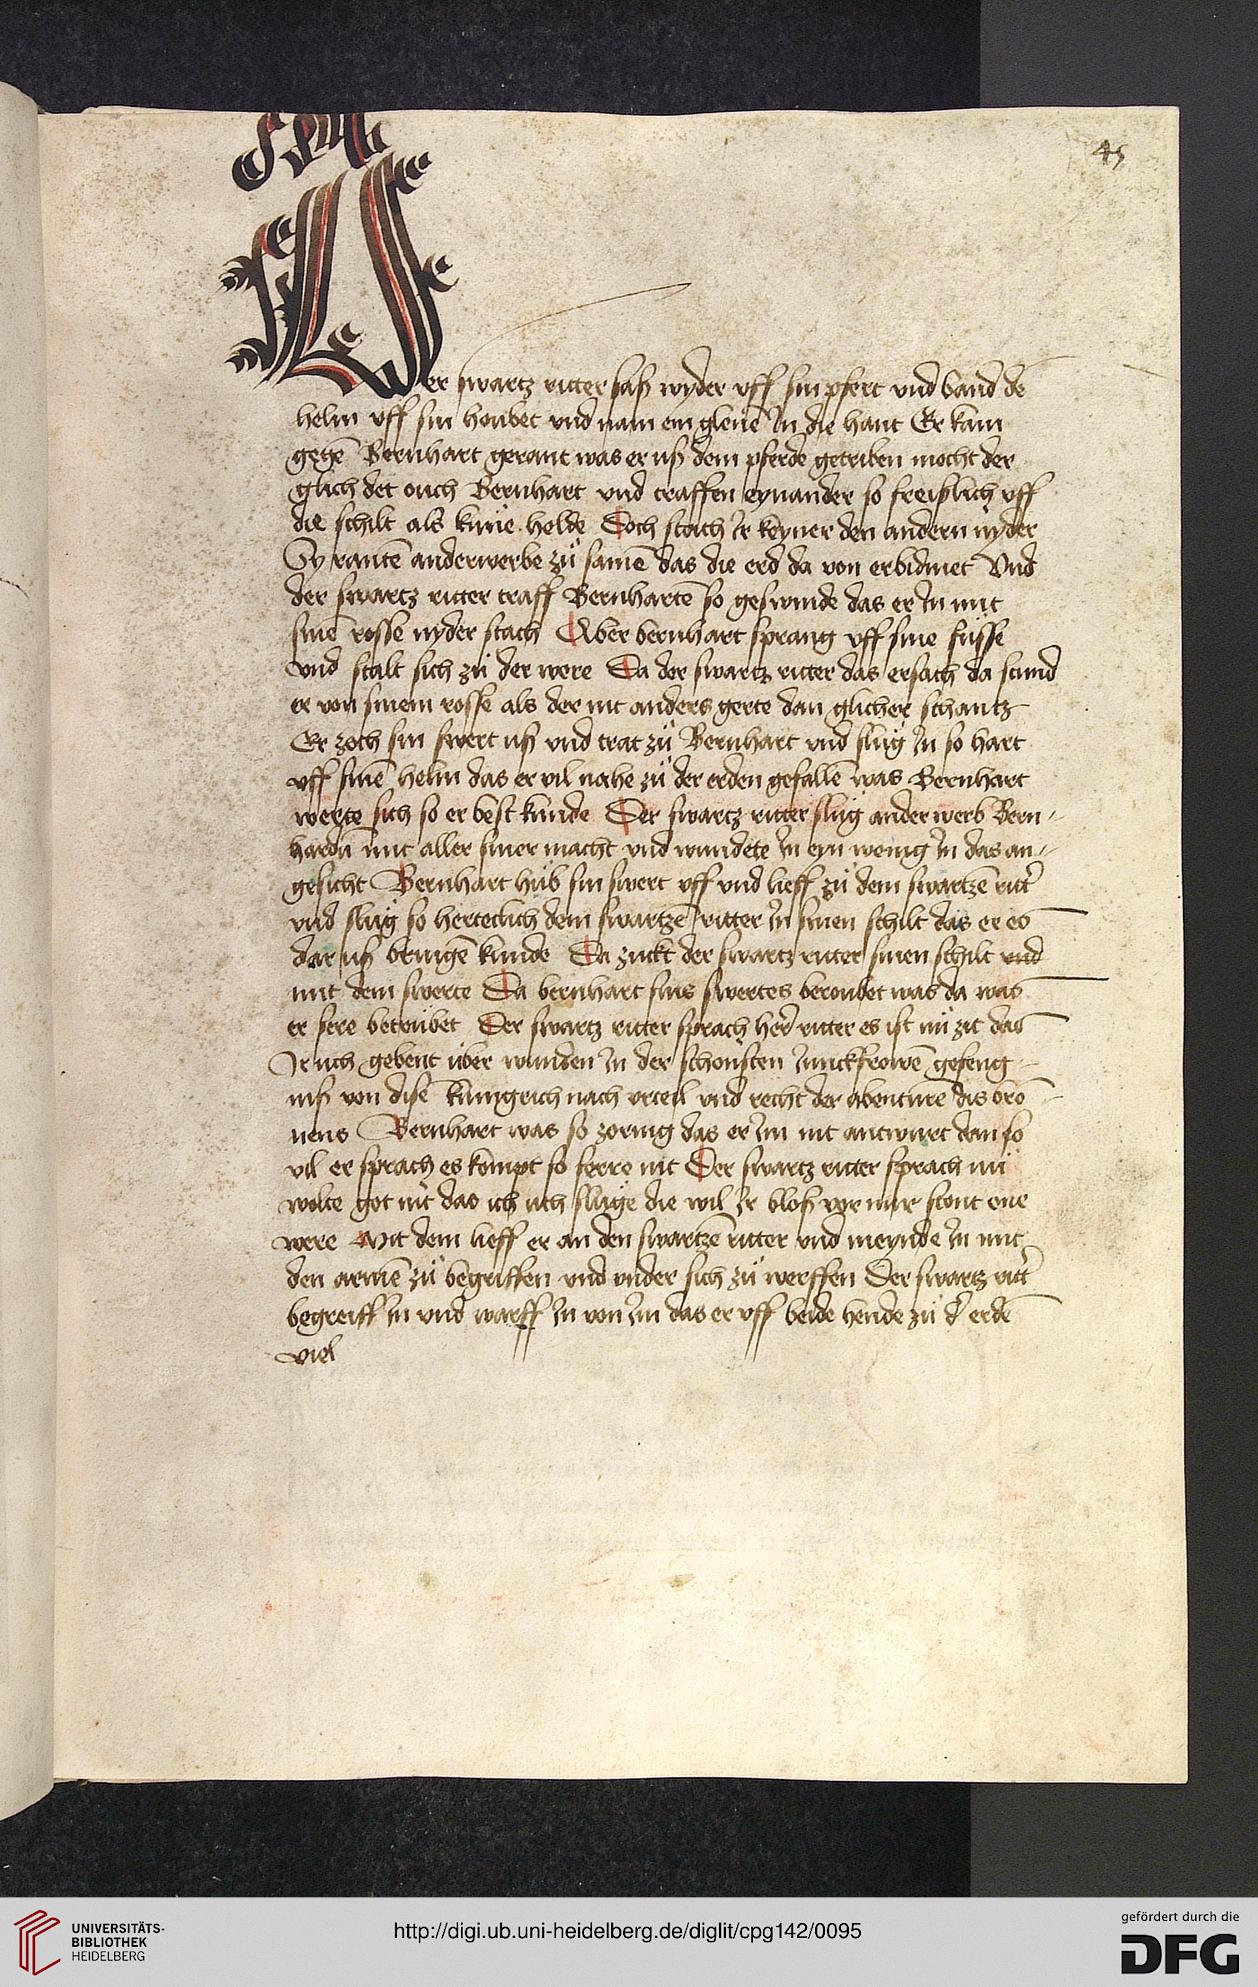 45
Der swartz ritter saß wyder vff sin pfert vnd band dē
helm vff sin houbet vnd nam ein glenē Jn die hant Er kam
gegē Bernhart gerant was er uß dem pferde getriben mocht der
glich det ouch Bernhart vnd traffen eynander so freißlich vff
die schilt als kune helde Doch stach Jr keyner den andern nyder
Sy rantē anderwerbe zů samē das die erd da von erbidmet Vnd
der swartz ritter traff Bernhartē so geswinde das er Jn mit
sinē rosse nyder stach Aber bernhart sprang vff sine füsse
vnd stalt sich zů der were Da der swartz ritter das ersach da stund
er von sinem rosse als der nit anders gerte dan glicher schantz
Er zoch sin swert uß vnd trat zů Bernhart vnd slüg Jn so hart
vff sinē helm das er vil nahe zů der erden gefallē was Bernhart
werte sich so er best kunde Der swartz ritter slüg ander werb Bern-
hardn mit aller siner macht vnd wundete Jn eyn wenig Jn das an-
gesicht Bernhart hůb sin swert vff vnd lieff zů dem swartzē rittr
vnd slůg so herteclich dem swartzē ritter Jn sinen schilt das er es
dar uß bringē kunde Da zuckt der swartz ritter sinen schilt vnd
mit dem swerte Da bernhart sins swertes beroubet was da was
er sere betrübet Der swartz ritter sprach her ritter es ist nů zit das
Jr uch gebent über wunden Jn der schonsten Junckfrowē gefeng-
niß von disē kungrich nach urteil vnd recht der abenture dis bro-
nens Bernhart was so zornig das er Jm nit antwurt dan so
vil er sprach es kompt so ferre nit Der swartz ritter sprach nů
wolte got nit das ich uch slage die wil Jr bloß vor mir stont ene
were Mit dem lieff er an den swartzē ritter vnd meynde Jn mit
den armē zů begriffen vnd vnder sich zů werffen Der swartz rittr
begreiff Jn vnd warff Jn von Jm das er vff beide hende zů dr erdē
viel
UNIVERSITÄTS-
BIBLIOTHEK
HEIDELBERG
http://digi.ub.uni-heidelberg.de/diglit/cpg142/0095
gefördert durch die
DFG